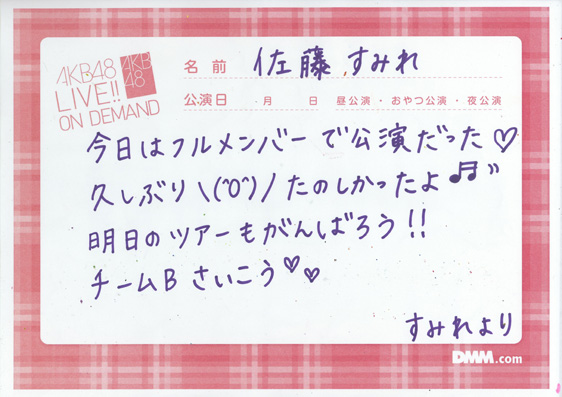 AKB48
LIVE!!
ON DEMAND
AKB
48
名前 佐藤 すみれ
公演日 月 日 昼公演・おやつ公演・夜公演
今日はフルメンバーで公演だった♡
久しぶり\(^0^)/たのしかったよ♬"
明日のツアーもがんばろう!!
チームBさいこう♡♡
すみれより
DMM.com